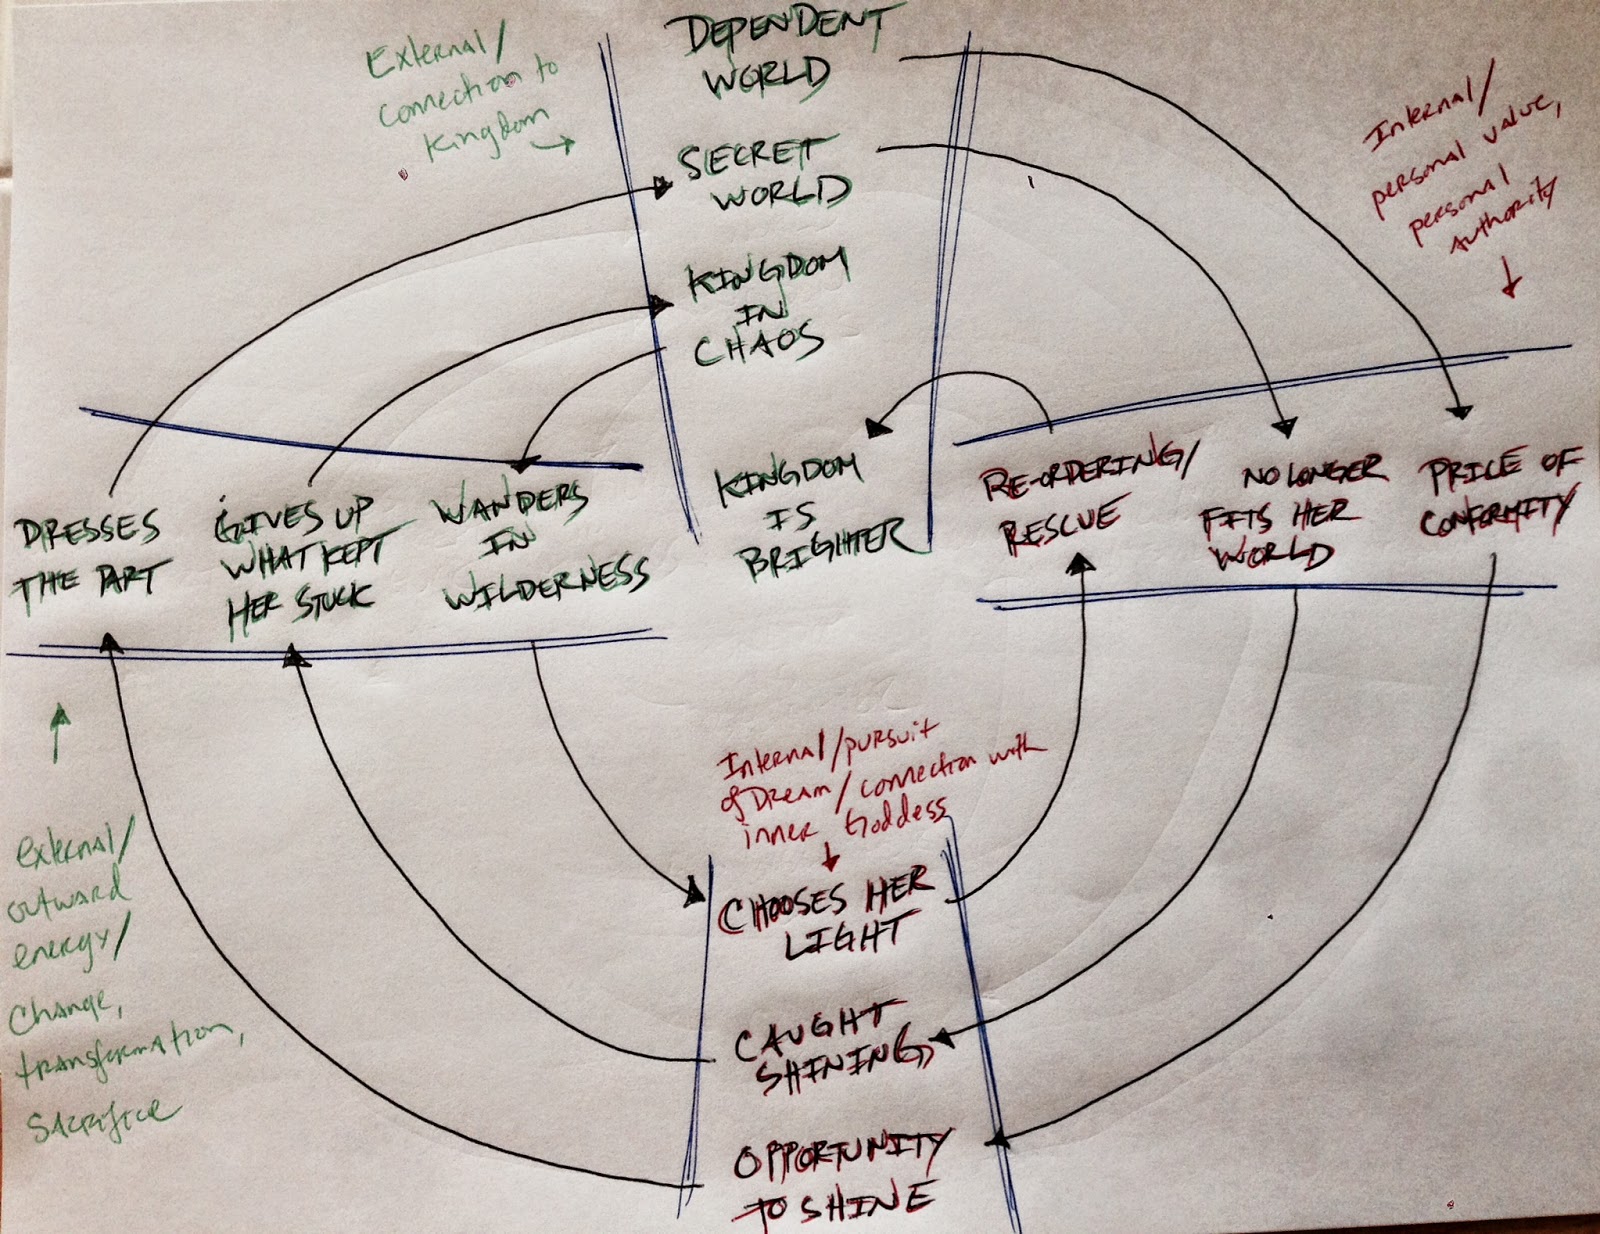 External/
connection to
Kingdom
DEPENDENT
WORLD
SECRET
WORLD
KINGDOM
IN
CHAOS
KINGDOM
IS
BRIGHTER
Internal/
personal value,
personal
Authority
DRESSES
THE PART
GIVES UP
WHAT KEPT
HER STUCK
WANDERS
IN
WILDERNESS
RE-ORDERING/
RESCUE
NO LONGER
FITS HER
WORLD
PRICE OF
CONFORMITY
Internal/pursuit
of Dream/connection with
inner Goddess
CHOOSES HER
LIGHT
CAUGHT
SHINING
OPPORTUNITY
TO SHINE
external/
outward
energy/
Change,
transformation,
Sacrifice